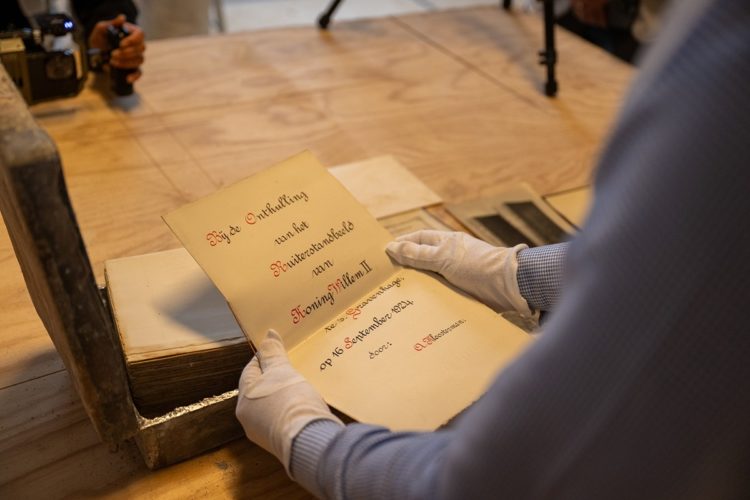 Bij de Onthulling
van het
Ruiterstandbeeld
van
Koning Willem II
te 's Gravenhage,
op 16 September 1924
door:
A. Kloosterman.